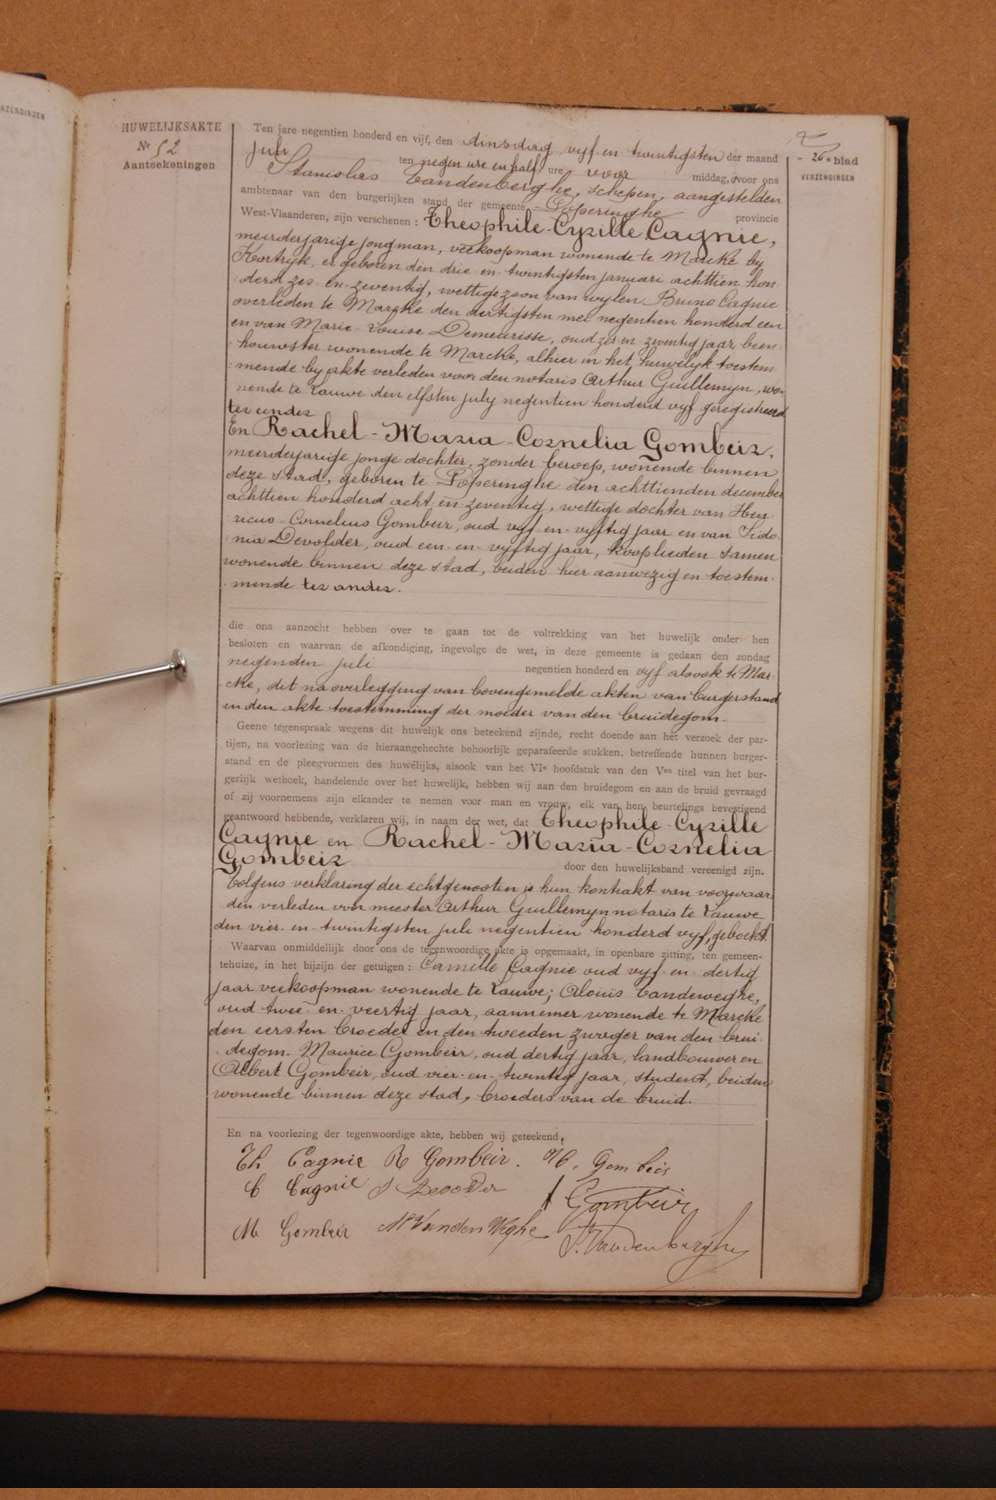 HUWELIJKSAKTE
Nr 52
Aanteekeningen
- 26 - blad
VERZENDINGEN
Ten jare negentien honderd en vijf, den dinsdag vijf en twintigsten der maand
juli ten negen ure en half ure voor middag, voor ons
Stanislas Vandenberghe, schepen, aangestelden
ambtenaar van den burgerlijken stand der gemeente Poperinghe provincie
West-Vlaanderen, zijn verschenen : Theophile-Cyrille Cagnie,
meerderjarige jongman, veekoopman wonende te Marcke by
Kortrijk, er geboren den drie en twintigsten januari achttien hon
derd zes en zeventig, wettige zoon van wylen Bruno Cagnie
overleden te Marcke den dertigsten mei negentien honderd een
en van Marie-Louise Demeurisse, oud zes en zeventig jaar been
houwster wonende te Marcke, alhier in het huwelyk toestem
mende by akte verleden voor den notaris Arthur Guillemyn, wo
nende te Lauwe den elfsten july negentien honderd vyf geregistreerd
ter eender
En Rachel-Maria-Cornelia Gombeir,
meerderjarige jonge dochter, zonder beroep, wonende binnen
deze stad, geboren te Poperinghe den achttienden december
achttien honderd acht en zeventig, wettige dochter van Hen
ricus-Cornelius Gombeir, oud vyf-en-vyftig jaar en van Sido
nia Devolder, oud een-en-vyftig jaar, kooplieden samen
wonende binnen deze stad, beiden hier aanwezig en toestem
mende ter ander.
die ons aanzocht hebben over te gaan tot de voltrekking van het huwelijk onder hen
besloten en waarvan de afkondiging, ingevolge de wet, in deze gemeente is gedaan den zondag
negenden juli negentien honderd en vyf alsook te Mar
cke, dit na overlegging van bovengemelde akten van burgerstand
en den akte toestemming der moeder van den bruidegom.
Geene tegenspraak wegens dit huwelijk ons beteekend zijnde, recht doende aan het verzoek der par-
tijen, na voorlezing van de hieraangehechte behoorlijk geparafeerde stukken, betreffende hunnen burger-
stand en de pleegvormen des huwelijks, alsook van het VIe hoofdstuk van den Ven titel van het bur-
gerlijk wetboek, handelende over het huwelijk, hebben wij aan den bruidegom en aan de bruid gevraagd
of zij voornemens zijn elkander te nemen voor man en vrouw, elk van hen beurtelings bevestigend
geantwoord hebbende, verklaren wij, in naam der wet, dat Theophile-Cyrille
Cagnie en Rachel-Maria-Cornelia
Gombeir door den huwelijksband vereenigd zijn.
Volgens verklaring der echtgenooten is hun kontrakt van voorwaar
den verleden voor meester Arthur Guillemyn notaris te Lauwe
den vier-en-twintigsten juli negentien honderd vyf, geboekt.
Waarvan onmiddellijk door ons de tegenwoordige akte is opgemaakt, in openbare zitting, ten gemeen-
tehuize, in het bijzijn der getuigen : Camille Cagnie oud vyf-en-dertig
jaar veekoopman wonende te Lauwe; Aloüis Vandeweghe,
oud twee-en-veertig jaar, aannemer wonende te Marcke
den eersten broeder en den tweeden zwager van den brui
degom. Maurice Gombeir, oud dertig jaar, landbouwer en
Albert Gombeir, oud vier-en-twintig jaar, student, beiden
wonende binnen deze stad, broeders van de bruid.
En na voorlezing der tegenwoordige akte, hebben wij geteekend.
Th Cagnie R Gombeir. H. Gombeir
C Cagnie S Devolder A Gombeir
M Gombeir Al Vanden Weghe S. Vandenberghe